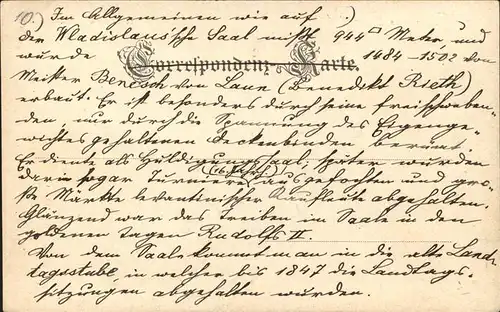 10.) Im Allgemeinen wie auf )
der Wladislaus'sche Saal mißt 944□ Meter und
wurde 1484-1502 von
Correspondenz Karte.
Meister Benesch von Laun (Benedikt Rieth)
erbaut. Er ist besonders durch seine freischweben-
den, nur durch die Spannung des Eigenge-
wichtes gehaltenen Deckenbinden berümt.
Er diente als Huldigungssaal, später wurden
(16. Jahrh.)
darin sogar Turniere ausgefochten und gro-
ße Märkte levantinischer Kaufleute abgehalten.
Glänzend war das Treiben im Saale in den
goldenen Tagen Rudolfs II.
Von dem Saale kommt man in die alte Land-
tagsstube in welcher bis 1847 die Landtags-
sitzungen abgehalten wurden.